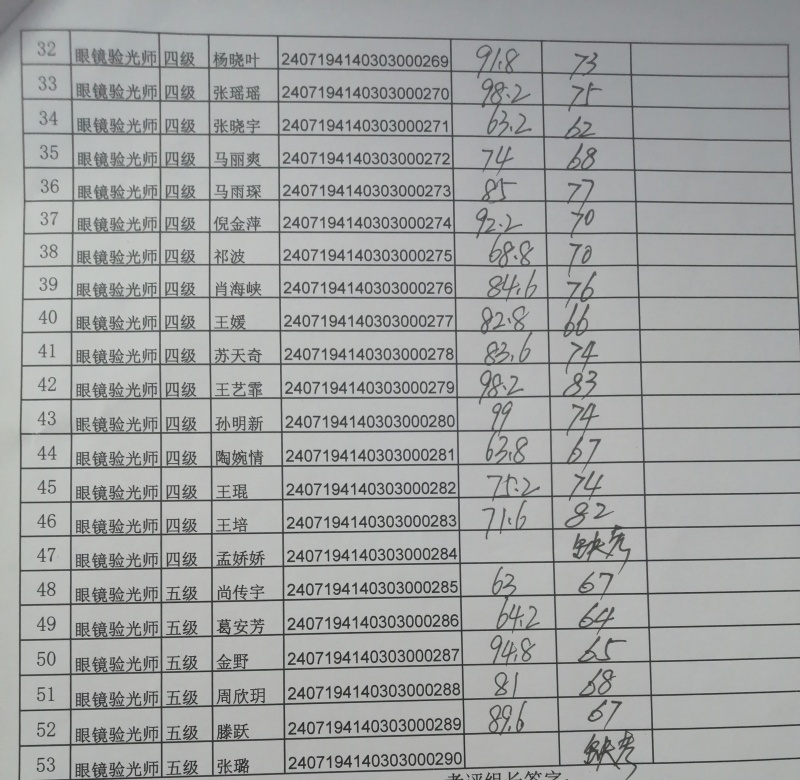 32 眼镜验光师 四级 杨晓叶 2407194140303000269 91.8 73
33 眼镜验光师 四级 张瑶瑶 2407194140303000270 98.2 75
34 眼镜验光师 四级 张晓宇 2407194140303000271 63.2 62
35 眼镜验光师 四级 马丽爽 2407194140303000272 74 68
36 眼镜验光师 四级 马雨琛 2407194140303000273 85 77
37 眼镜验光师 四级 倪金萍 2407194140303000274 92.2 70
38 眼镜验光师 四级 祁波 2407194140303000275 68.8 70
39 眼镜验光师 四级 肖海峡 2407194140303000276 84.6 76
40 眼镜验光师 四级 王媛 2407194140303000277 82.8 66
41 眼镜验光师 四级 苏天奇 2407194140303000278 83.6 74
42 眼镜验光师 四级 王艺霏 2407194140303000279 98.2 83
43 眼镜验光师 四级 孙明新 2407194140303000280 99 74
44 眼镜验光师 四级 陶婉情 2407194140303000281 63.8 67
45 眼镜验光师 四级 王琨 2407194140303000282 75.2 74
46 眼镜验光师 四级 王培 2407194140303000283 71.6 82
47 眼镜验光师 四级 孟娇娇 2407194140303000284 缺考
48 眼镜验光师 五级 尚传宇 2407194140303000285 63 67
49 眼镜验光师 五级 葛安芳 2407194140303000286 64.2 64
50 眼镜验光师 五级 金野 2407194140303000287 94.8 65
51 眼镜验光师 五级 周欣玥 2407194140303000288 81 68
52 眼镜验光师 五级 滕跃 2407194140303000289 89.6 67
53 眼镜验光师 五级 张璐 2407194140303000290 缺考
考评组长签字: